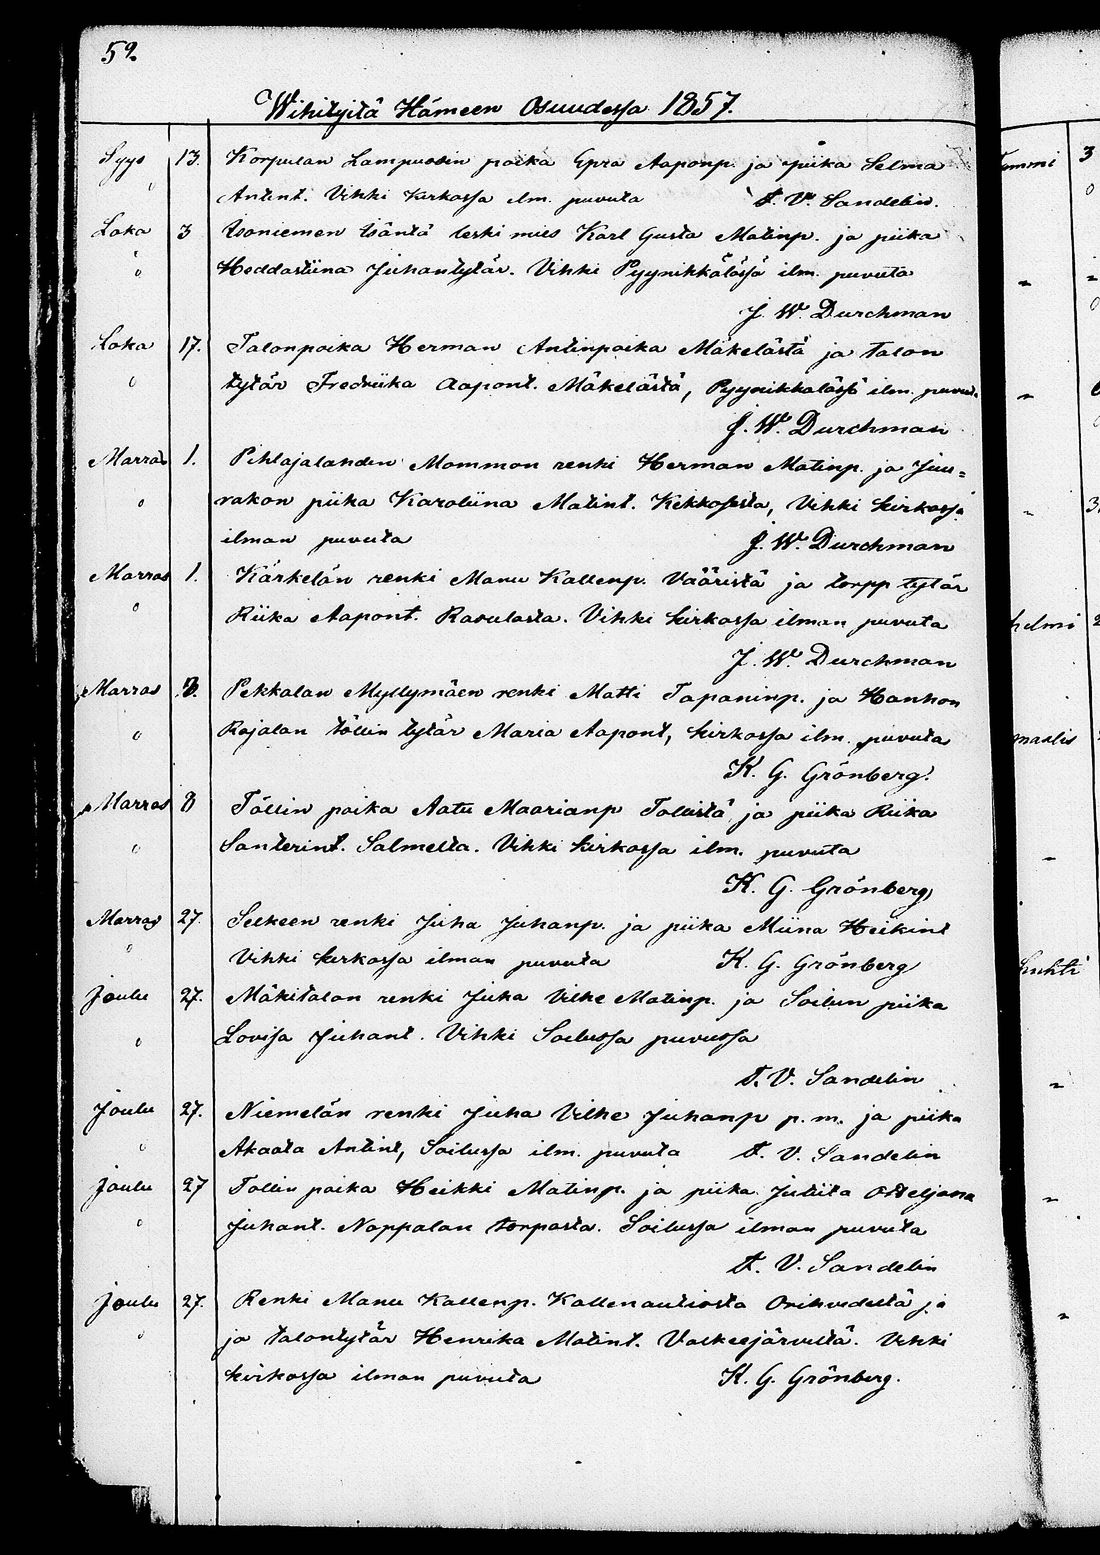 52.
Wihityitä Hämeen Osuudessa 1857.
Syys 13. Korpulan Lampuotin poika Epra Aaponp. ja piika Selma
" Antint. Vihki kirkossa ilm. puvuta T. V. Sandelin.
Loka 3 Isoniemen Isäntä leski mies Karl Gusta Matinp. ja piika
" Heddastiina Juhantytär. Vihki Pyynikkälässä ilm. puvuta
J. W. Durchman
Loka 17. Talonpoika Herman Antinpoika Mäkelästä ja talon
" tytär Fredriika Aapont. Mäkelästä, Pyynikkälässä ilm. puvuta
J. W. Durchman
Marras 1. Pihlajalanden Mommon renki Herman Matinp. ja Juu-
" rakon piika Karoliina Matint. Kekkosesta, Vihki kirkossa
ilman puvuta J. W. Durchman
Marras 1. Kärkelän renki Manu Kallenp. Vääristä ja torpp tytär
" Riika Aapont. Rasulasta. Vihki kirkossa ilman puvuta
J. W. Durchman
Marras 8. Pekkalan Myllymäen renki Matti Tapaninp. ja Hanhon
" Rajalan töllin tytär Maria Aapont, kirkossa ilm. puvuta
K. G. Grönberg.
Marras 8 Töllin poika Aatu Maarianp Tolustä ja piika Riika
" Santerint. Salmelta. Vihki kirkossa ilm. puvuta
K. G. Grönberg
Marras 27. Selkeen renki Juha Juhanp. ja piika Miina Heikint
" Vihki kirkossa ilman puvuta K. G. Grönberg
Joulu 27. Mäkitalon renki Juha Vilhe Matinp. ja Soilun piika
" Lovisa Juhant. Vihki Soilussa puvussa
T. V. Sandelin
Joulu 27. Niemelän renki Juha Vilhe Juhanp p. m. ja piika
" Akaata Antint, Soilussa ilm. puvuta T. V. Sandelin
Joulu 27 Tollin poika Heikki Matinp. ja piika Jutiita Otteljana
" Juhant. Nappalan torpasta. Soilussa ilman puvuta
T. V. Sandelin
Joulu 27. Renki Manu Kallenp. Kallenautiosta Orihvedeltä ja
" ja talontytär Henrika Matint. Valkeejärveltä. Vihki
kirkossa ilman puvuta K. G. Grönberg.
Tammi 3
helmi
maalis
huhti